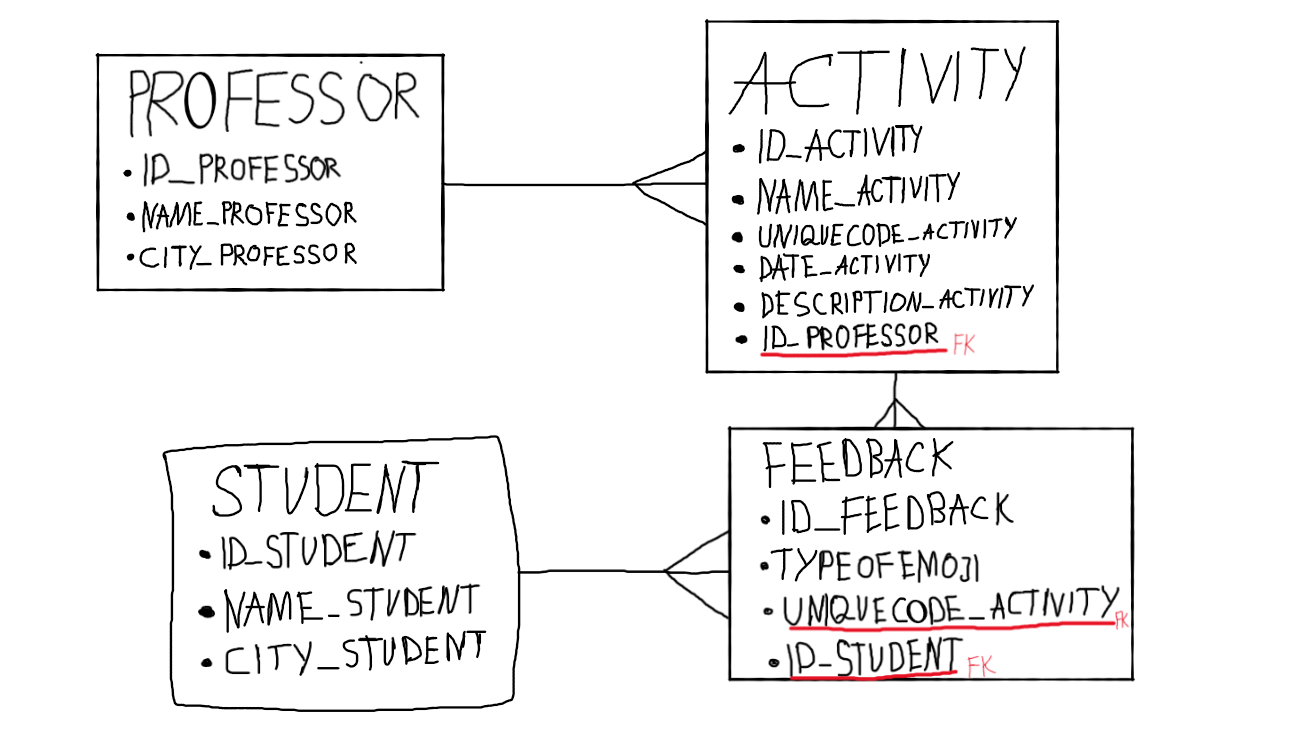 PROFESSOR
ID_PROFESSOR
NAME_PROFESSOR
CITY_PROFESSOR
ACTIVITY
ID_ACTIVITY
NAME_ACTIVITY
UNIQUECODE_ACTIVITY
DATE_ACTIVITY
DESCRIPTION_ACTIVITY
ID_PROFESSOR FK
STUDENT
ID_STUDENT
NAME_STUDENT
CITY_STUDENT
FEEDBACK
ID_FEEDBACK
TYPEOFEMOJI
UNIQUECODE_ACTIVITY FK
ID_STUDENT FK